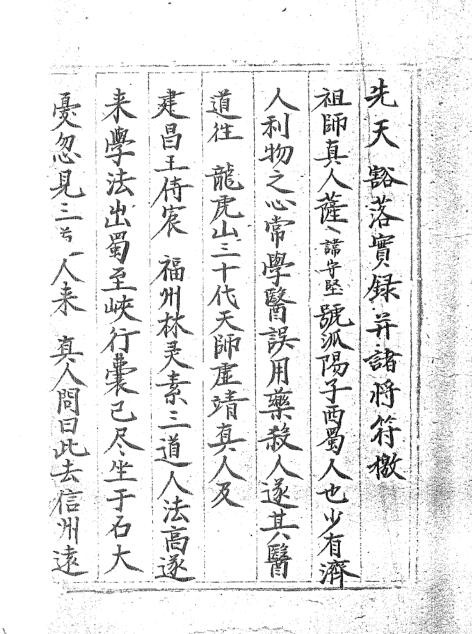 先天豁落實録并諸将符檄
祖師真人薩、諱守堅號派陽子西蜀人也少有濟
人利物之心常學醫誤用藥殺人遂其醫
道往 龍虎山三十代天師虚靖真人及
建昌王侍宸 福州林灵素三道人法高遂
来學法出蜀至峽行囊已尽坐于石大
憂忽見三人来 真人問曰此去信州遠